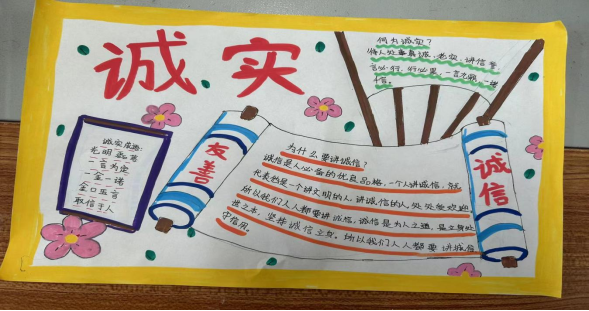 诚实
何为诚实?
待人处事真诚、老实、讲信誉,
言必行、行必果,一言九鼎,一诺
千金。
诚实成语:
光明磊落
一言为定
一金一诺
金口玉言
取信于人
友善
为什么要讲诚信?
诚信是人必备的优良品格,一个人讲诚信,就
代表他是一个讲文明的人,讲诚信的人处处受欢迎
所以我们人人都要讲诚信,诚信是为人之道,是立身处
世之本,坚持诚信立身。所以我们人人都要讲诚信
守信用。
诚信